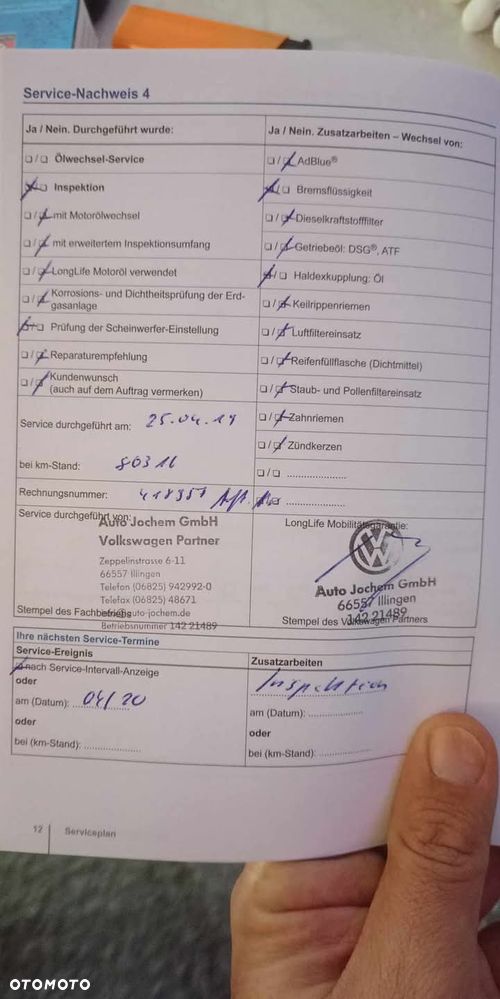 Service-Nachweis 4
Ja / Nein. Durchgeführt wurde:
Ja / Nein. Zusatzarbeiten – Wechsel von:
Ölwechsel-Service
AdBlue®
Inspektion
Bremsflüssigkeit
mit Motorölwechsel
Dieselkraftstofffilter
mit erweitertem Inspektionsumfang
Getriebeöl: DSG®, ATF
LongLife Motoröl verwendet
Haldexkupplung: Öl
Korrosions- und Dichtheitsprüfung der Erd-
gasanlage
Keilrippenriemen
Prüfung der Scheinwerfer-Einstellung
Luftfiltereinsatz
Reparaturempfehlung
Reifenfüllflasche (Dichtmittel)
Kundenwunsch
(auch auf dem Auftrag vermerken)
Staub- und Pollenfiltereinsatz
Zahnriemen
Zündkerzen
Service durchgeführt am: 25.04.19
bei km-Stand: 80316
Rechnungsnummer:
Service durchgeführt von:
Auto Jochem GmbH
Volkswagen Partner
Zeppelinstrasse 6-11
66557 Illingen
Telefon (06825) 942992-0
Telefax (06825) 48671
info@auto-jochem.de
Stempel des Fachbetriebs
Betriebsnummer 142 21489
LongLife Mobilitätsgarantie:
Auto Jochem GmbH
66557 Illingen
142 21489
Stempel des Volkswagen Partners
Ihre nächsten Service-Termine
Service-Ereignis
Zusatzarbeiten
nach Service-Intervall-Anzeige
Inspektion
oder
am (Datum): 04/20
am (Datum): ................
oder
oder
bei (km-Stand): ................
bei (km-Stand): ................
12 Serviceplan
OTOMOTO